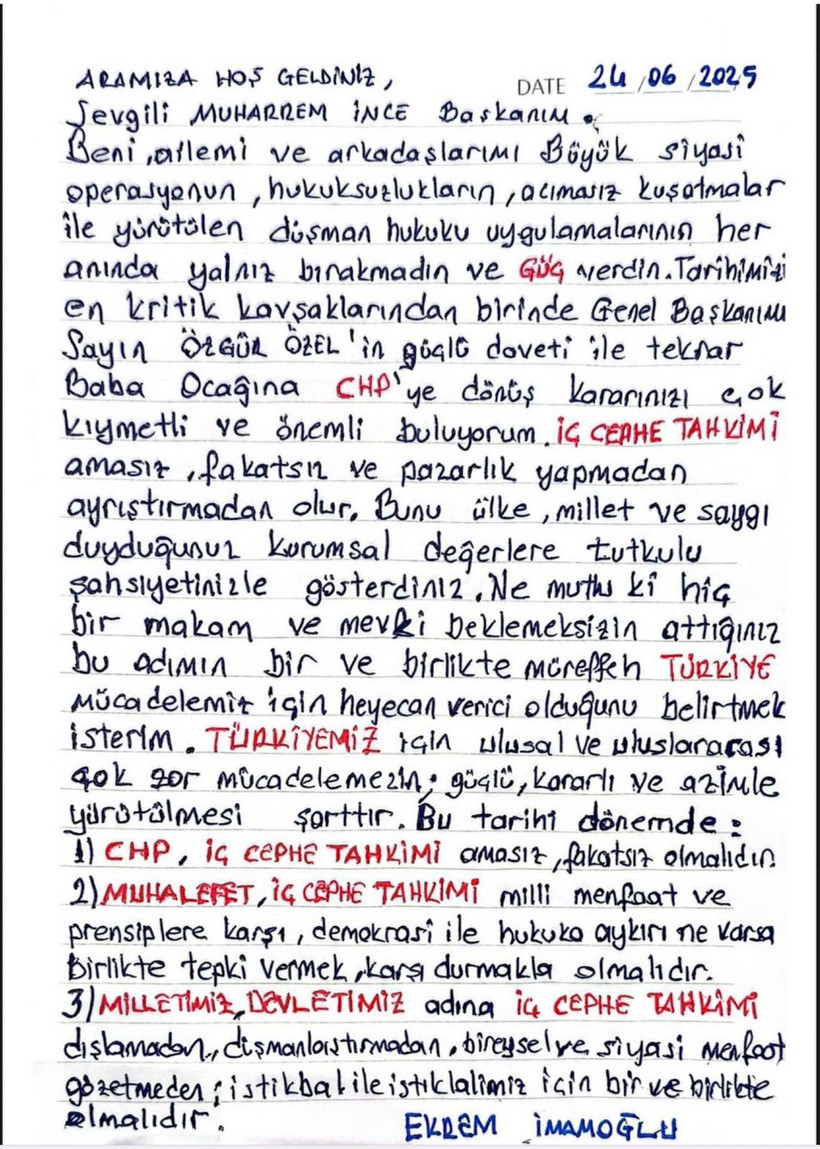 ARAMIZA HOŞ GELDİNİZ, DATE 24/06/2025
Sevgili MUHARREM İNCE Başkanım.
Beni, ailemi ve arkadaşlarımı Büyük siyasi
operasyonun, hukuksuzlukların, acımasız kuşatmalar
ile yürütülen düşman hukuku uygulamalarının her
anında yalnız bırakmadın ve GÜÇ verdin. Tarihimizi
en kritik kavşaklarından birinde Genel Başkanımı
Sayın ÖZGÜR ÖZEL'in güçlü daveti ile tekrar
Baba Ocağına CHP'ye dönüş kararınızı çok
kıymetli ve önemli buluyorum. İÇ CEPHE TAHKİMİ
amasız, fakatsız ve pazarlık yapmadan
ayrıştırmadan olur. Bunu ülke, millet ve saygı
duyduğunuz kurumsal değerlere tutkulu
şahsiyetinizle gösterdiniz. Ne mutlu ki hiç
bir makam ve mevki beklemeksizin attığınız
bu adımın bir ve birlikte müreffeh TÜRKİYE
mücadelemiz için heyecan verici olduğunu belirtmek
isterim. TÜRKİYEMİZ için ulusal ve uluslararası
çok zor mücadelemezin; güçlü, kararlı ve azimle
yürütülmesi şarttır. Bu tarihi dönemde:
1) CHP, İÇ CEPHE TAHKİMİ amasız, fakatsız olmalıdır.
2) MUHALEFET, İÇ CEPHE TAHKİMİ milli menfaat ve
prensiplere karşı, demokrasi ile hukuka aykırı ne varsa
birlikte tepki vermek, karşı durmakla olmalıdır.
3) MİLLETİMİZ, DEVLETİMİZ adına İÇ CEPHE TAHKİMİ
dışlamadan, düşmanlaştırmadan, bireysel ve siyasi menfaat
gözetmeden; istikbal ile istiklalimiz için bir ve birlikte
olmalıdır.
EKREM İMAMOĞLU